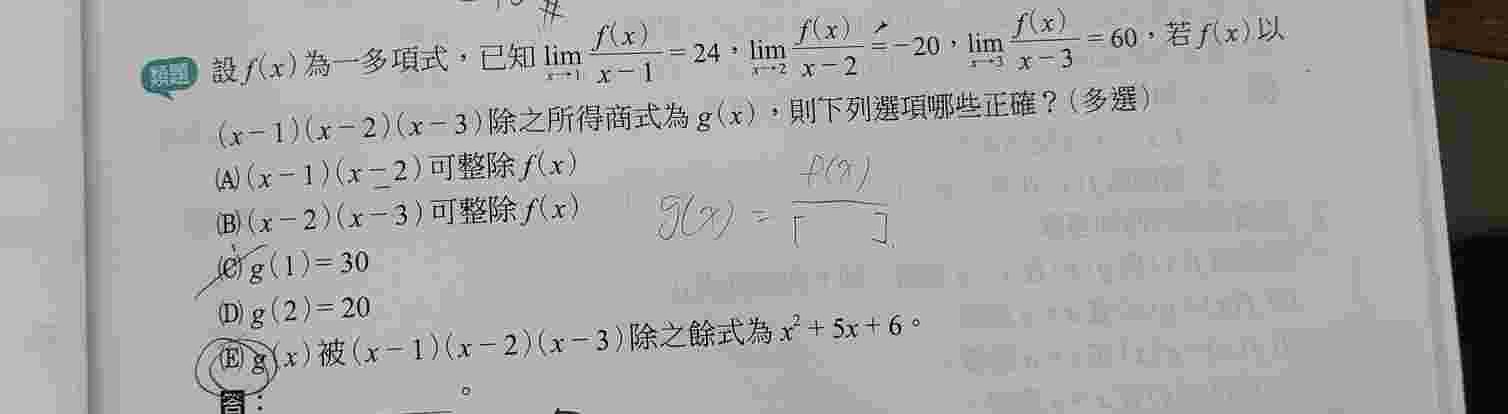 #
類題 設 f(x) 為一多項式，已知 lim_{x→1} f(x)/(x−1) = 24，lim_{x→2} f(x)/(x−2) = −20，lim_{x→3} f(x)/(x−3) = 60，若 f(x) 以
(x−1)(x−2)(x−3) 除之所得商式為 g(x)，則下列選項哪些正確？(多選)
(A) (x−1)(x−2) 可整除 f(x)
(B) (x−2)(x−3) 可整除 f(x)
g(x) = f(x)/[ ]
(C) g(1) = 30
(D) g(2) = 20
(E) g(x) 被 (x−1)(x−2)(x−3) 除之餘式為 x² + 5x + 6。
答：